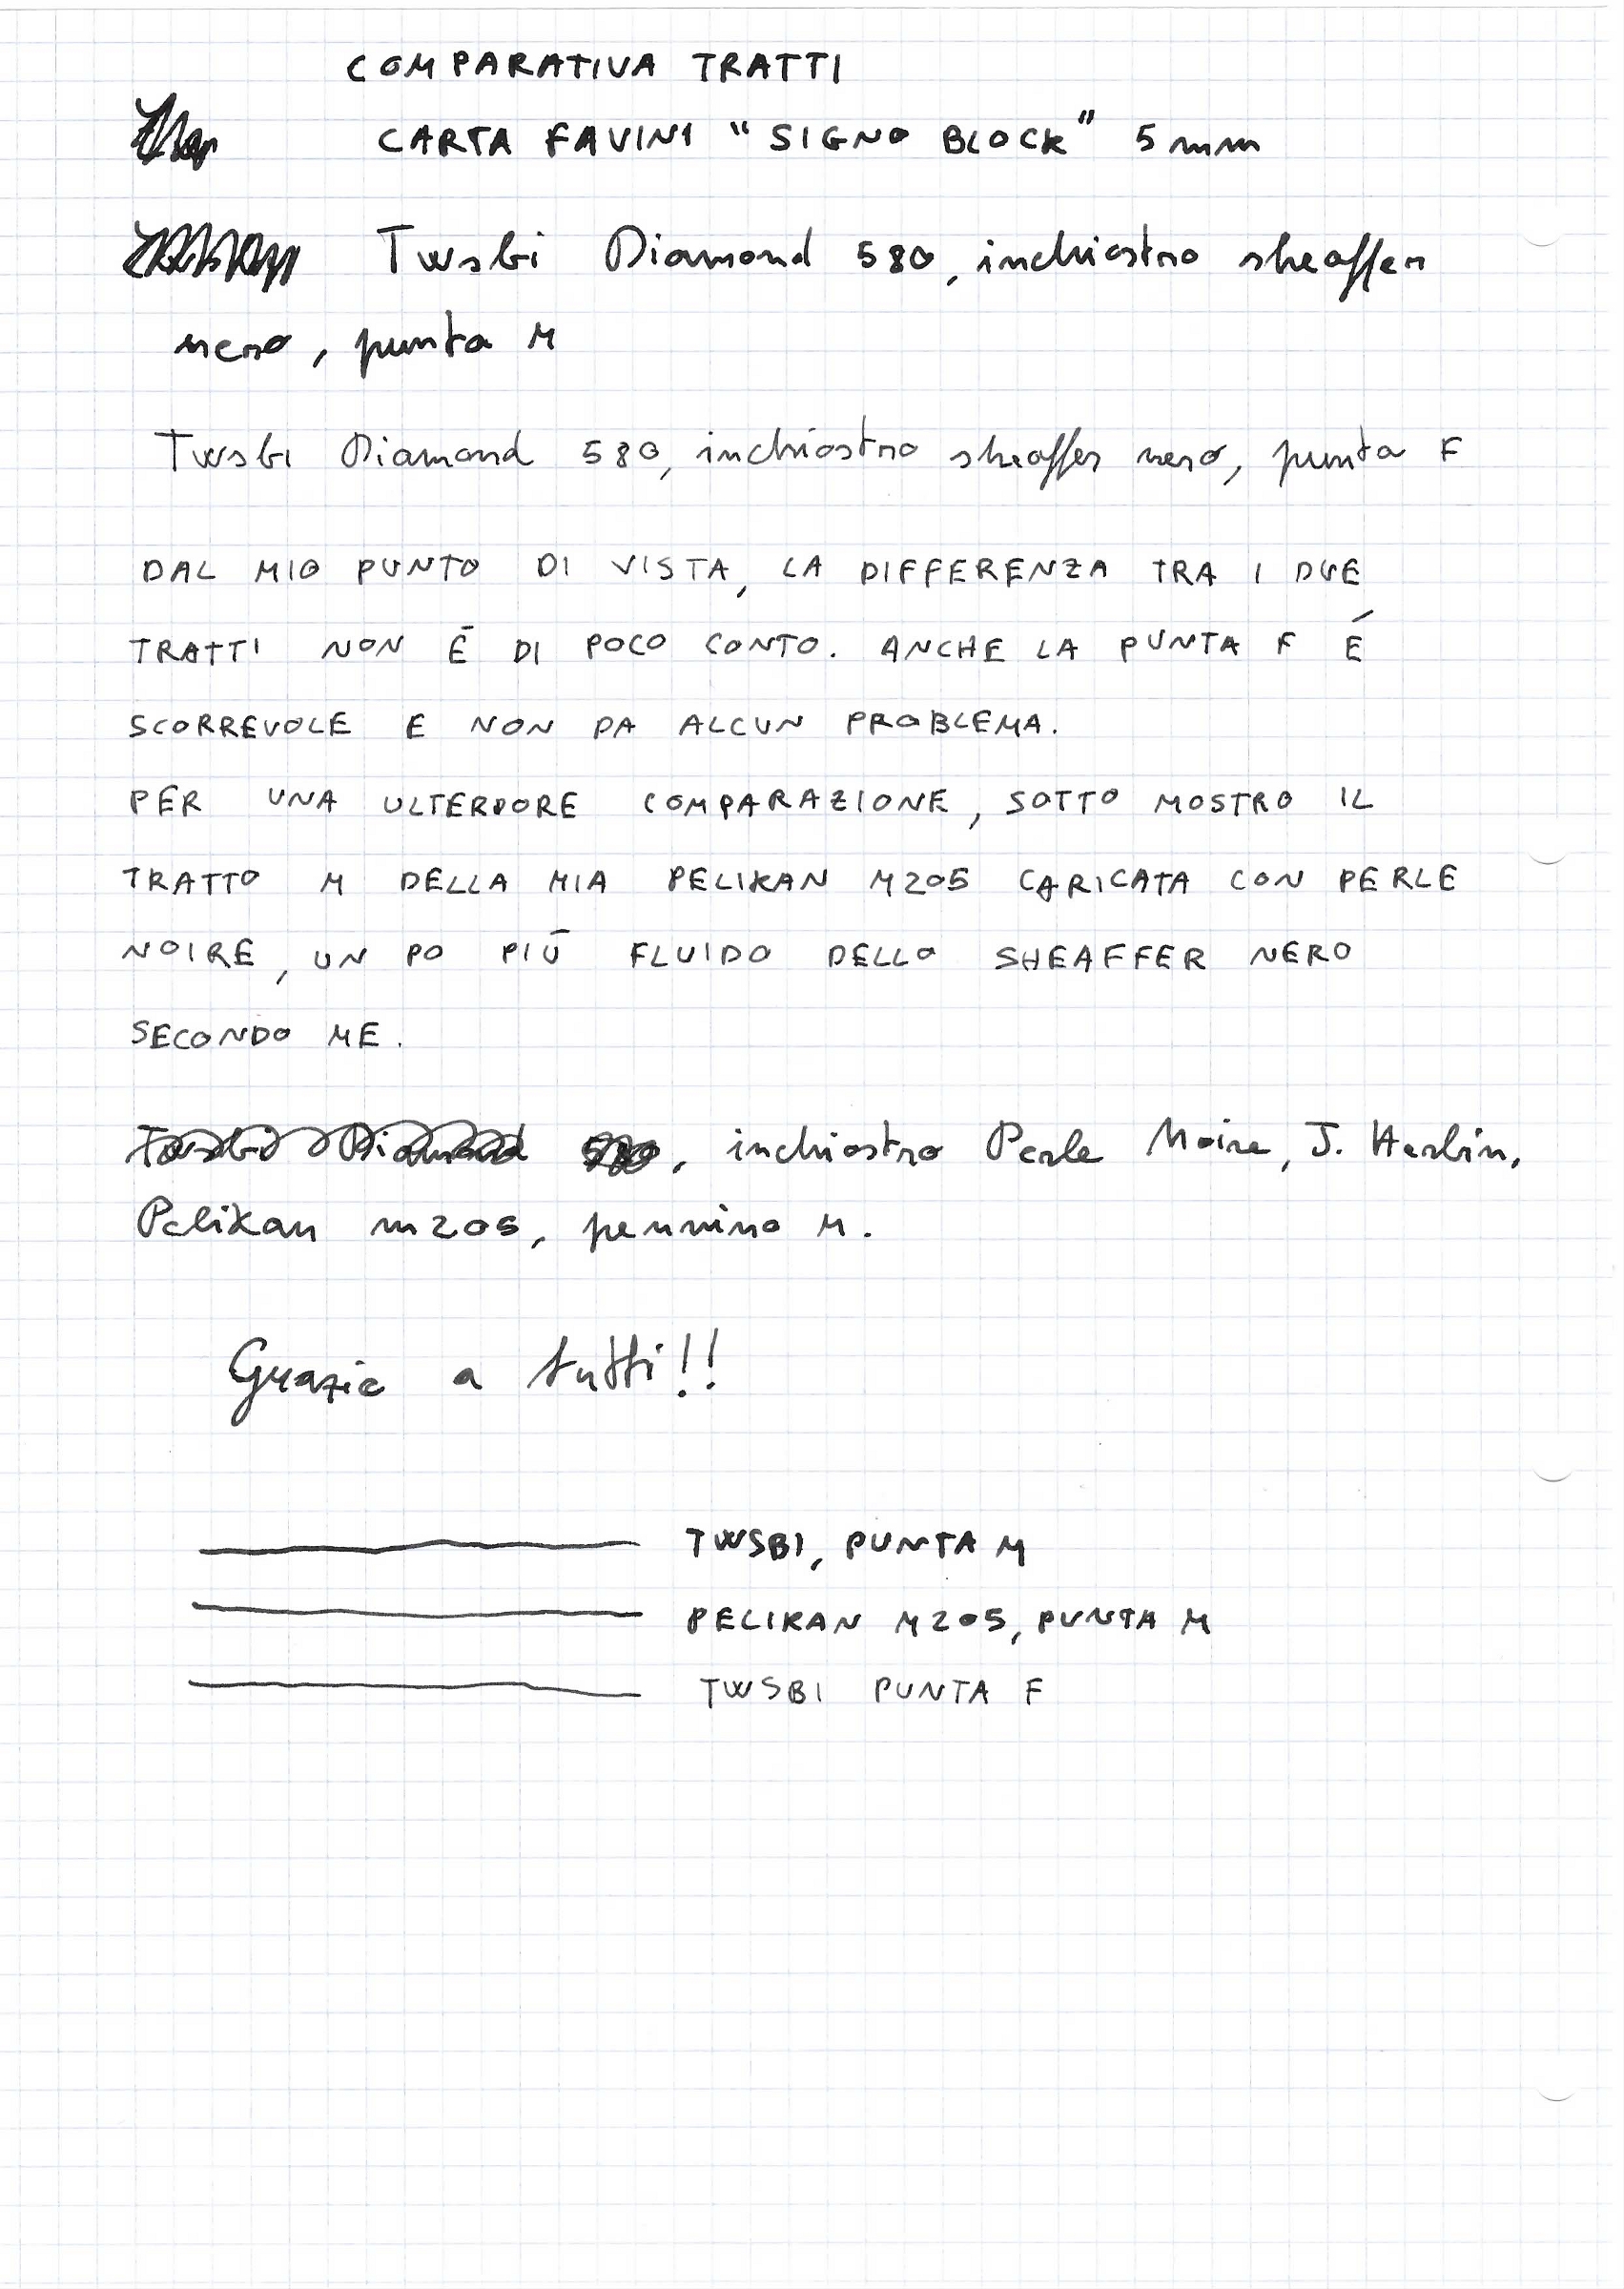 COMPARATIVA TRATTI
CARTA FAVINI "SIGNO BLOCK" 5 mm
Twsbi Diamond 580, inchiostro sheaffer
nero, punta M
Twsbi Diamond 580, inchiostro sheaffer nero, punta F
DAL MIO PUNTO DI VISTA, LA DIFFERENZA TRA I DUE
TRATTI NON É DI POCO CONTO. ANCHE LA PUNTA F É
SCORREVOLE E NON DA ALCUN PROBLEMA.
PER UNA ULTERIORE COMPARAZIONE, SOTTO MOSTRO IL
TRATTO M DELLA MIA PELIKAN M205 CARICATA CON PERLE
NOIRE, UN PO PIÚ FLUIDO DELLO SHEAFFER NERO
SECONDO ME.
Twsbi Diamond 580, inchiostro Perle Noire, J. Herbin,
Pelikan m205, pennino M.
Grazie a tutti!!
TWSBI, PUNTA M
PELIKAN M205, PUNTA M
TWSBI PUNTA F